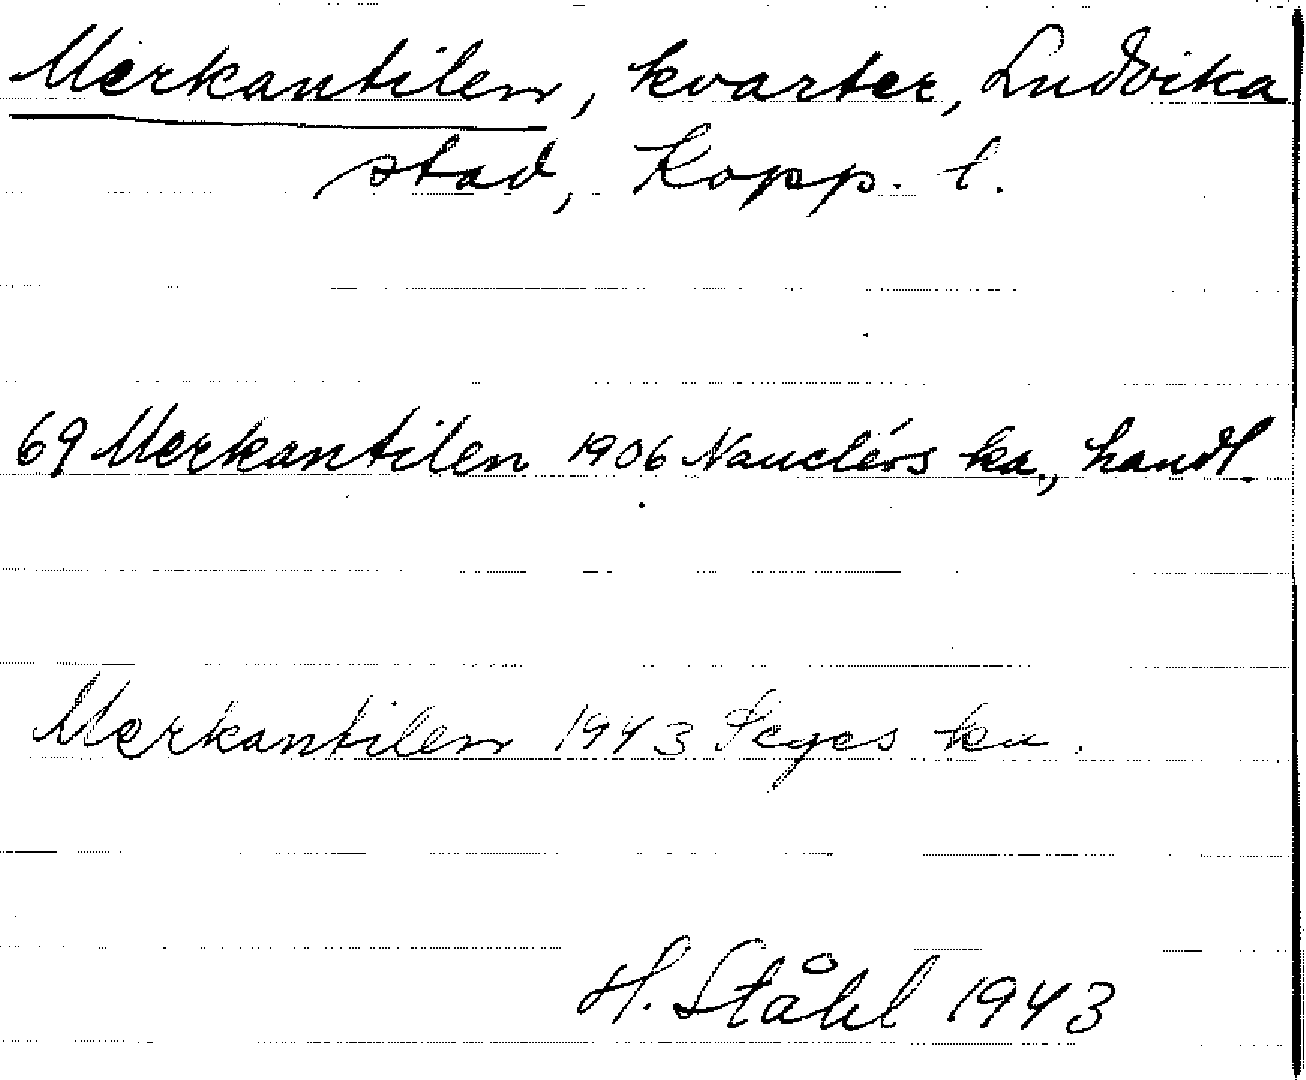 Merkantilen, kvarter, Ludvika
stad, Kopp. l.
69 Merkantilen 1906 Nauclérs ka., handl.
Merkantilen 1943 Seges ka.
H. Ståhl 1943